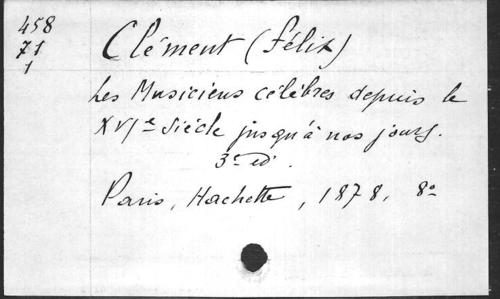 458
71
1
Clément (Félix)
Les Musiciens célèbres depuis le
XVIe Siécle jusqu'à nos jours.
3e ed.
Paris, Hachette, 1878, 8o